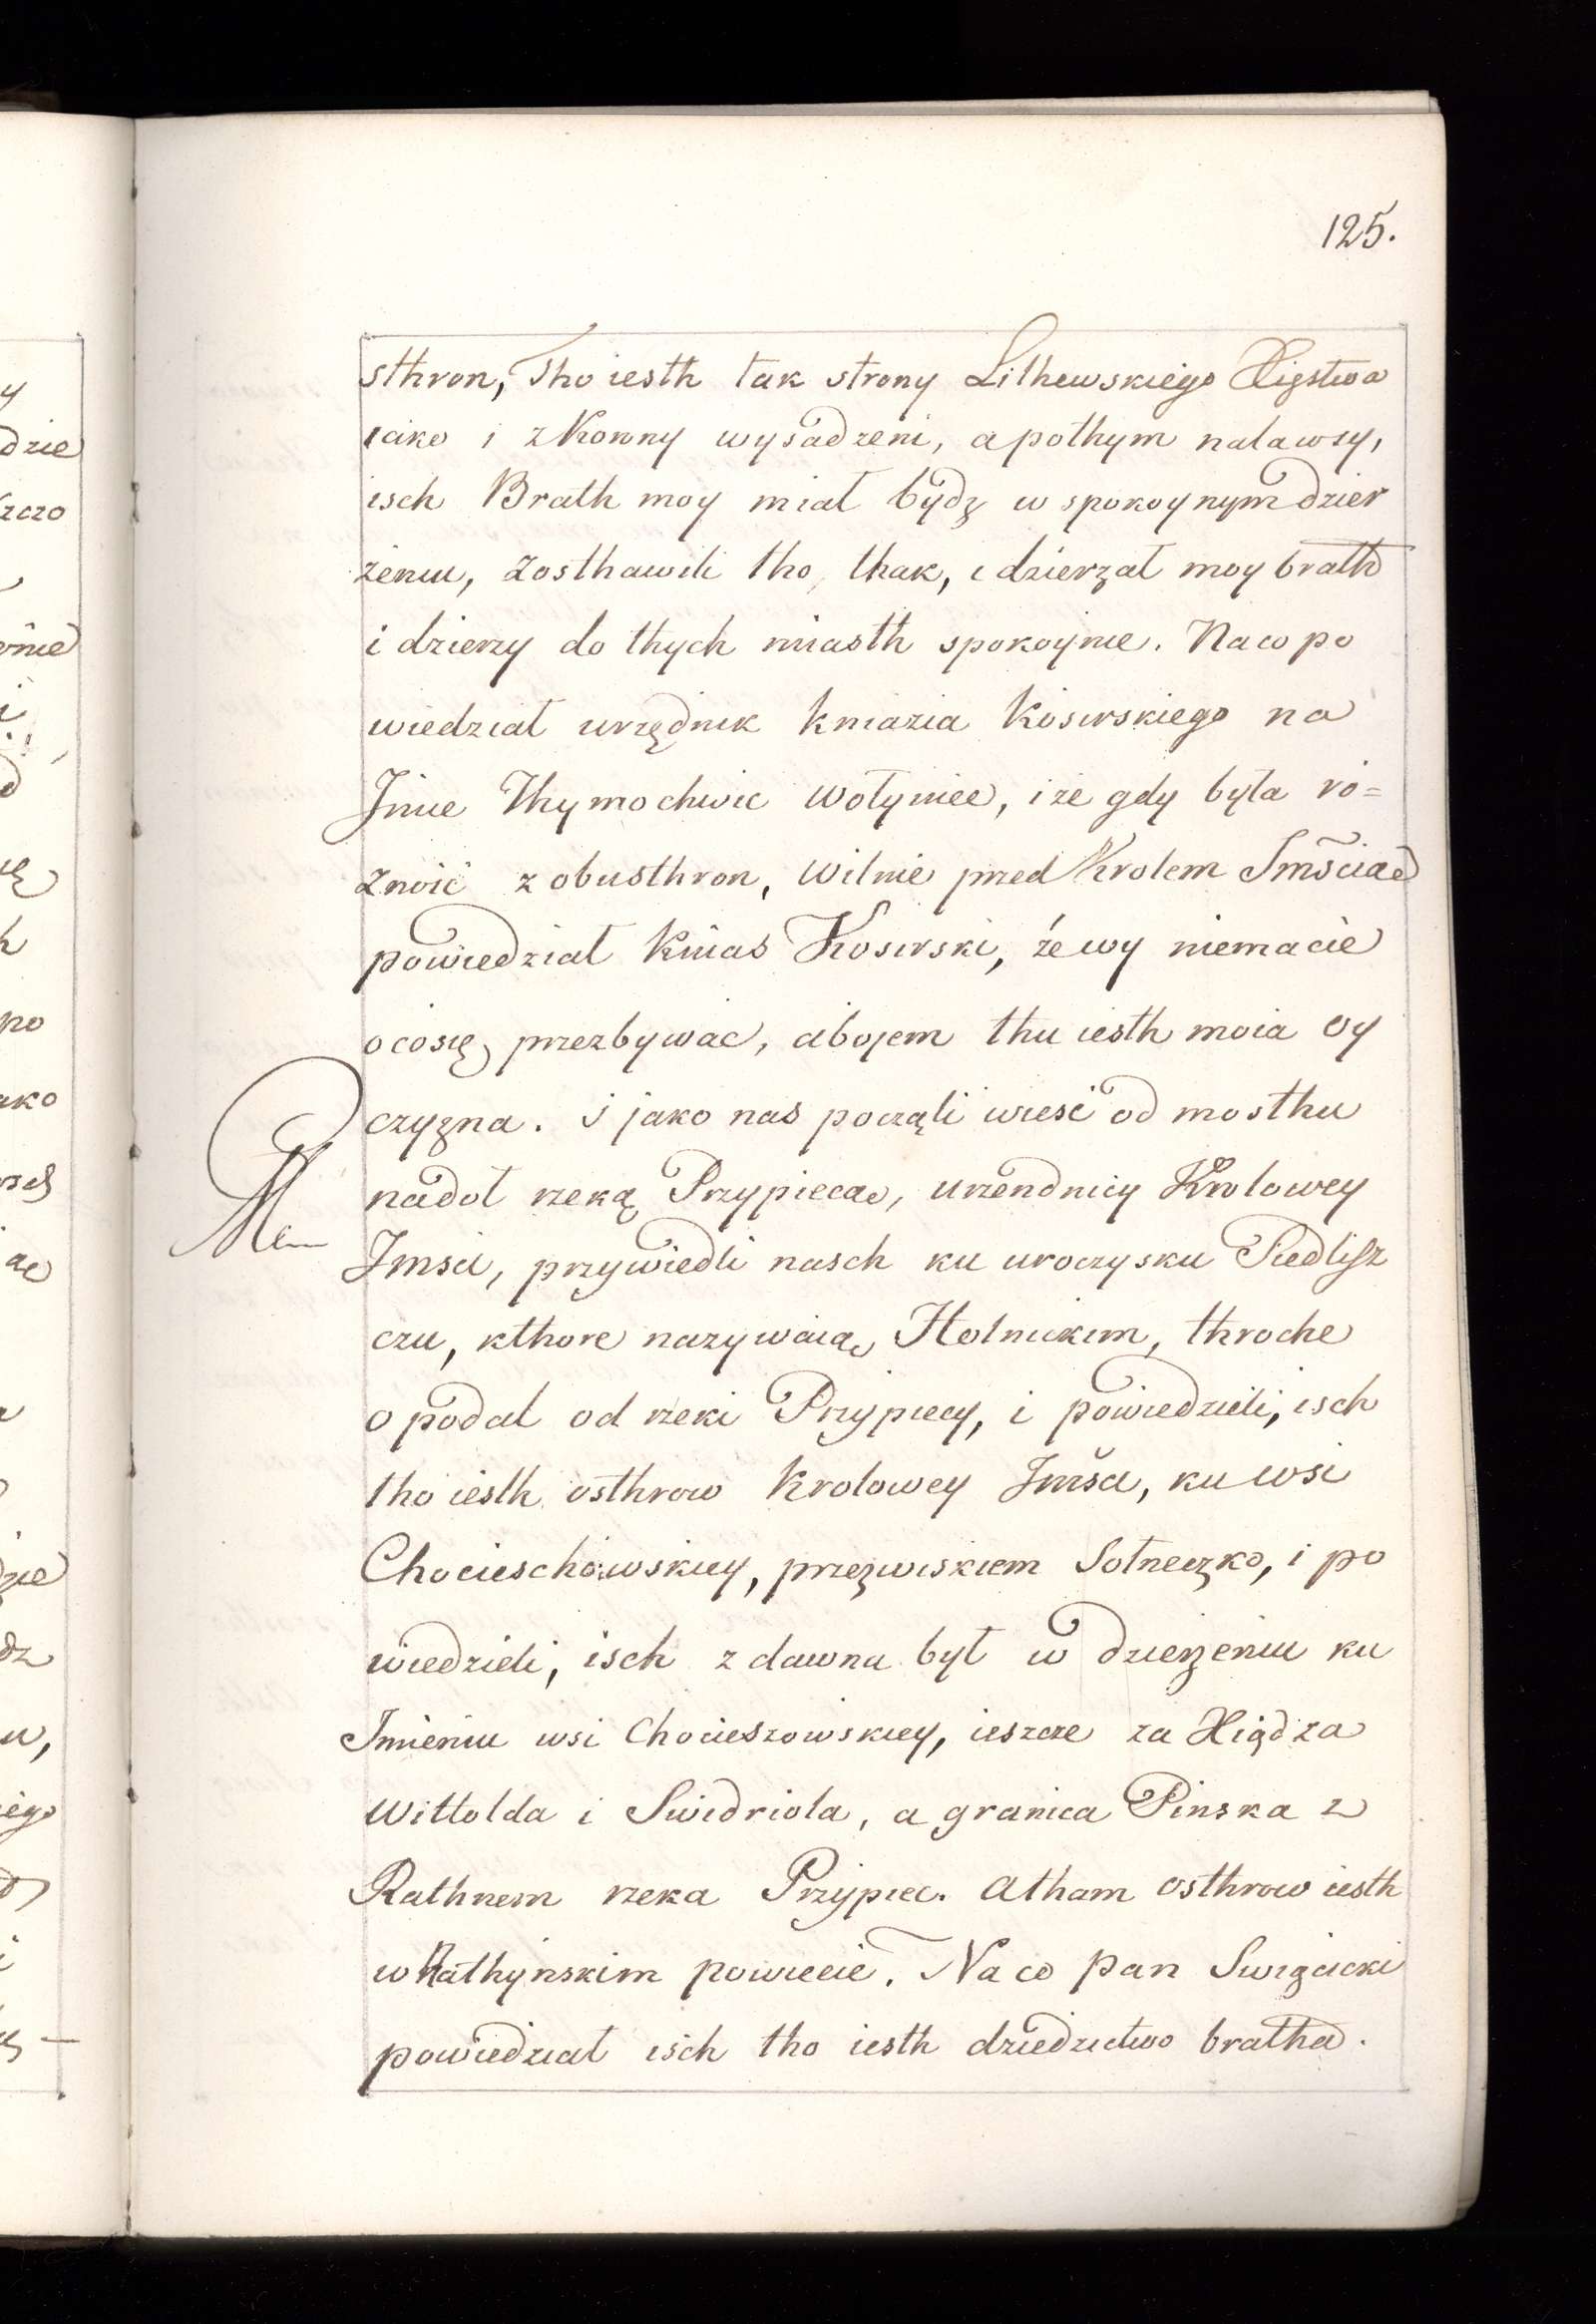 125.
sthron, Tho iesth tak strony Lithewskiego Xięstwa
iako i z Korony wysadzeni, a pothym nalawsy,
isch Brath moy miał bydz w spokoynym dzier
żeniu, zosthawili tho, thak, i dzierzał moy brath
i dzierzy do thych miasth spokoynie. Na co po
wiedział urzędnik kniazia Kosirskiego na
Jmie Thymochwic Wołyniec, iże gdy była ro=
znoić z obusthron, Wilnie przed Krolem Jmścia
powiedział Knias Kosirski, że wy niemacie
ocosię przezbywac, abojem thu iesth moia oy
czyzna. I jako nas począli wieść od mosthu
nadoł rzeką Przypiecą, urzendnicy Krolowey
Jmsci, przywiedli nasch ku uroczysku Siedlisz
czu, kthore nazywaią Holnickim, throche
opodal od rzeki Przypiecy, i powiedzieli, isch
tho iesth osthrow Krolowey Jmści, ku wsi
Chocieschowskiey, przezwiskiem Sotneczko, i po
wiedzieli, isch z dawna był w dzierzeniu ku
Jmieniu wsi Chocieszowskiey, ieszcze za Xiędza
Wittolda i Swidrioła, a granica Pinska z
Rathnem rzeka Przypiec. Atham osthrow iesth
w Rathynskim powiecie. Na co Pan Swięcicki
powiedział isch tho iesth dziedzictwo bratha.